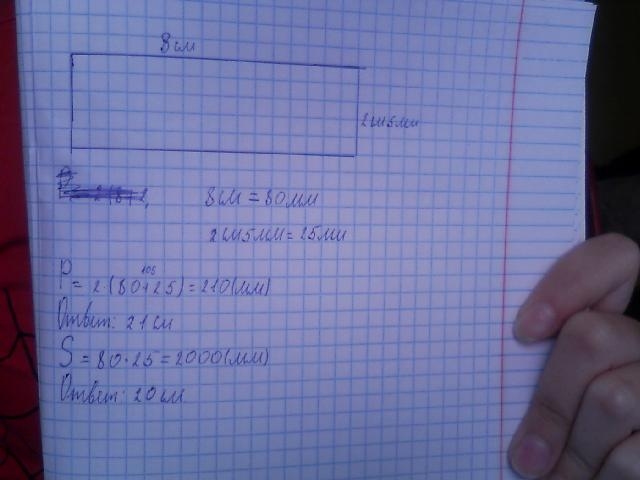 8см
2см5мм
8см = 80мм
2см5мм = 25мм
105
P = 2·(80+25) = 210(мм)
Ответ: 21см
S = 80·25 = 2000(мм)
Ответ: 20см